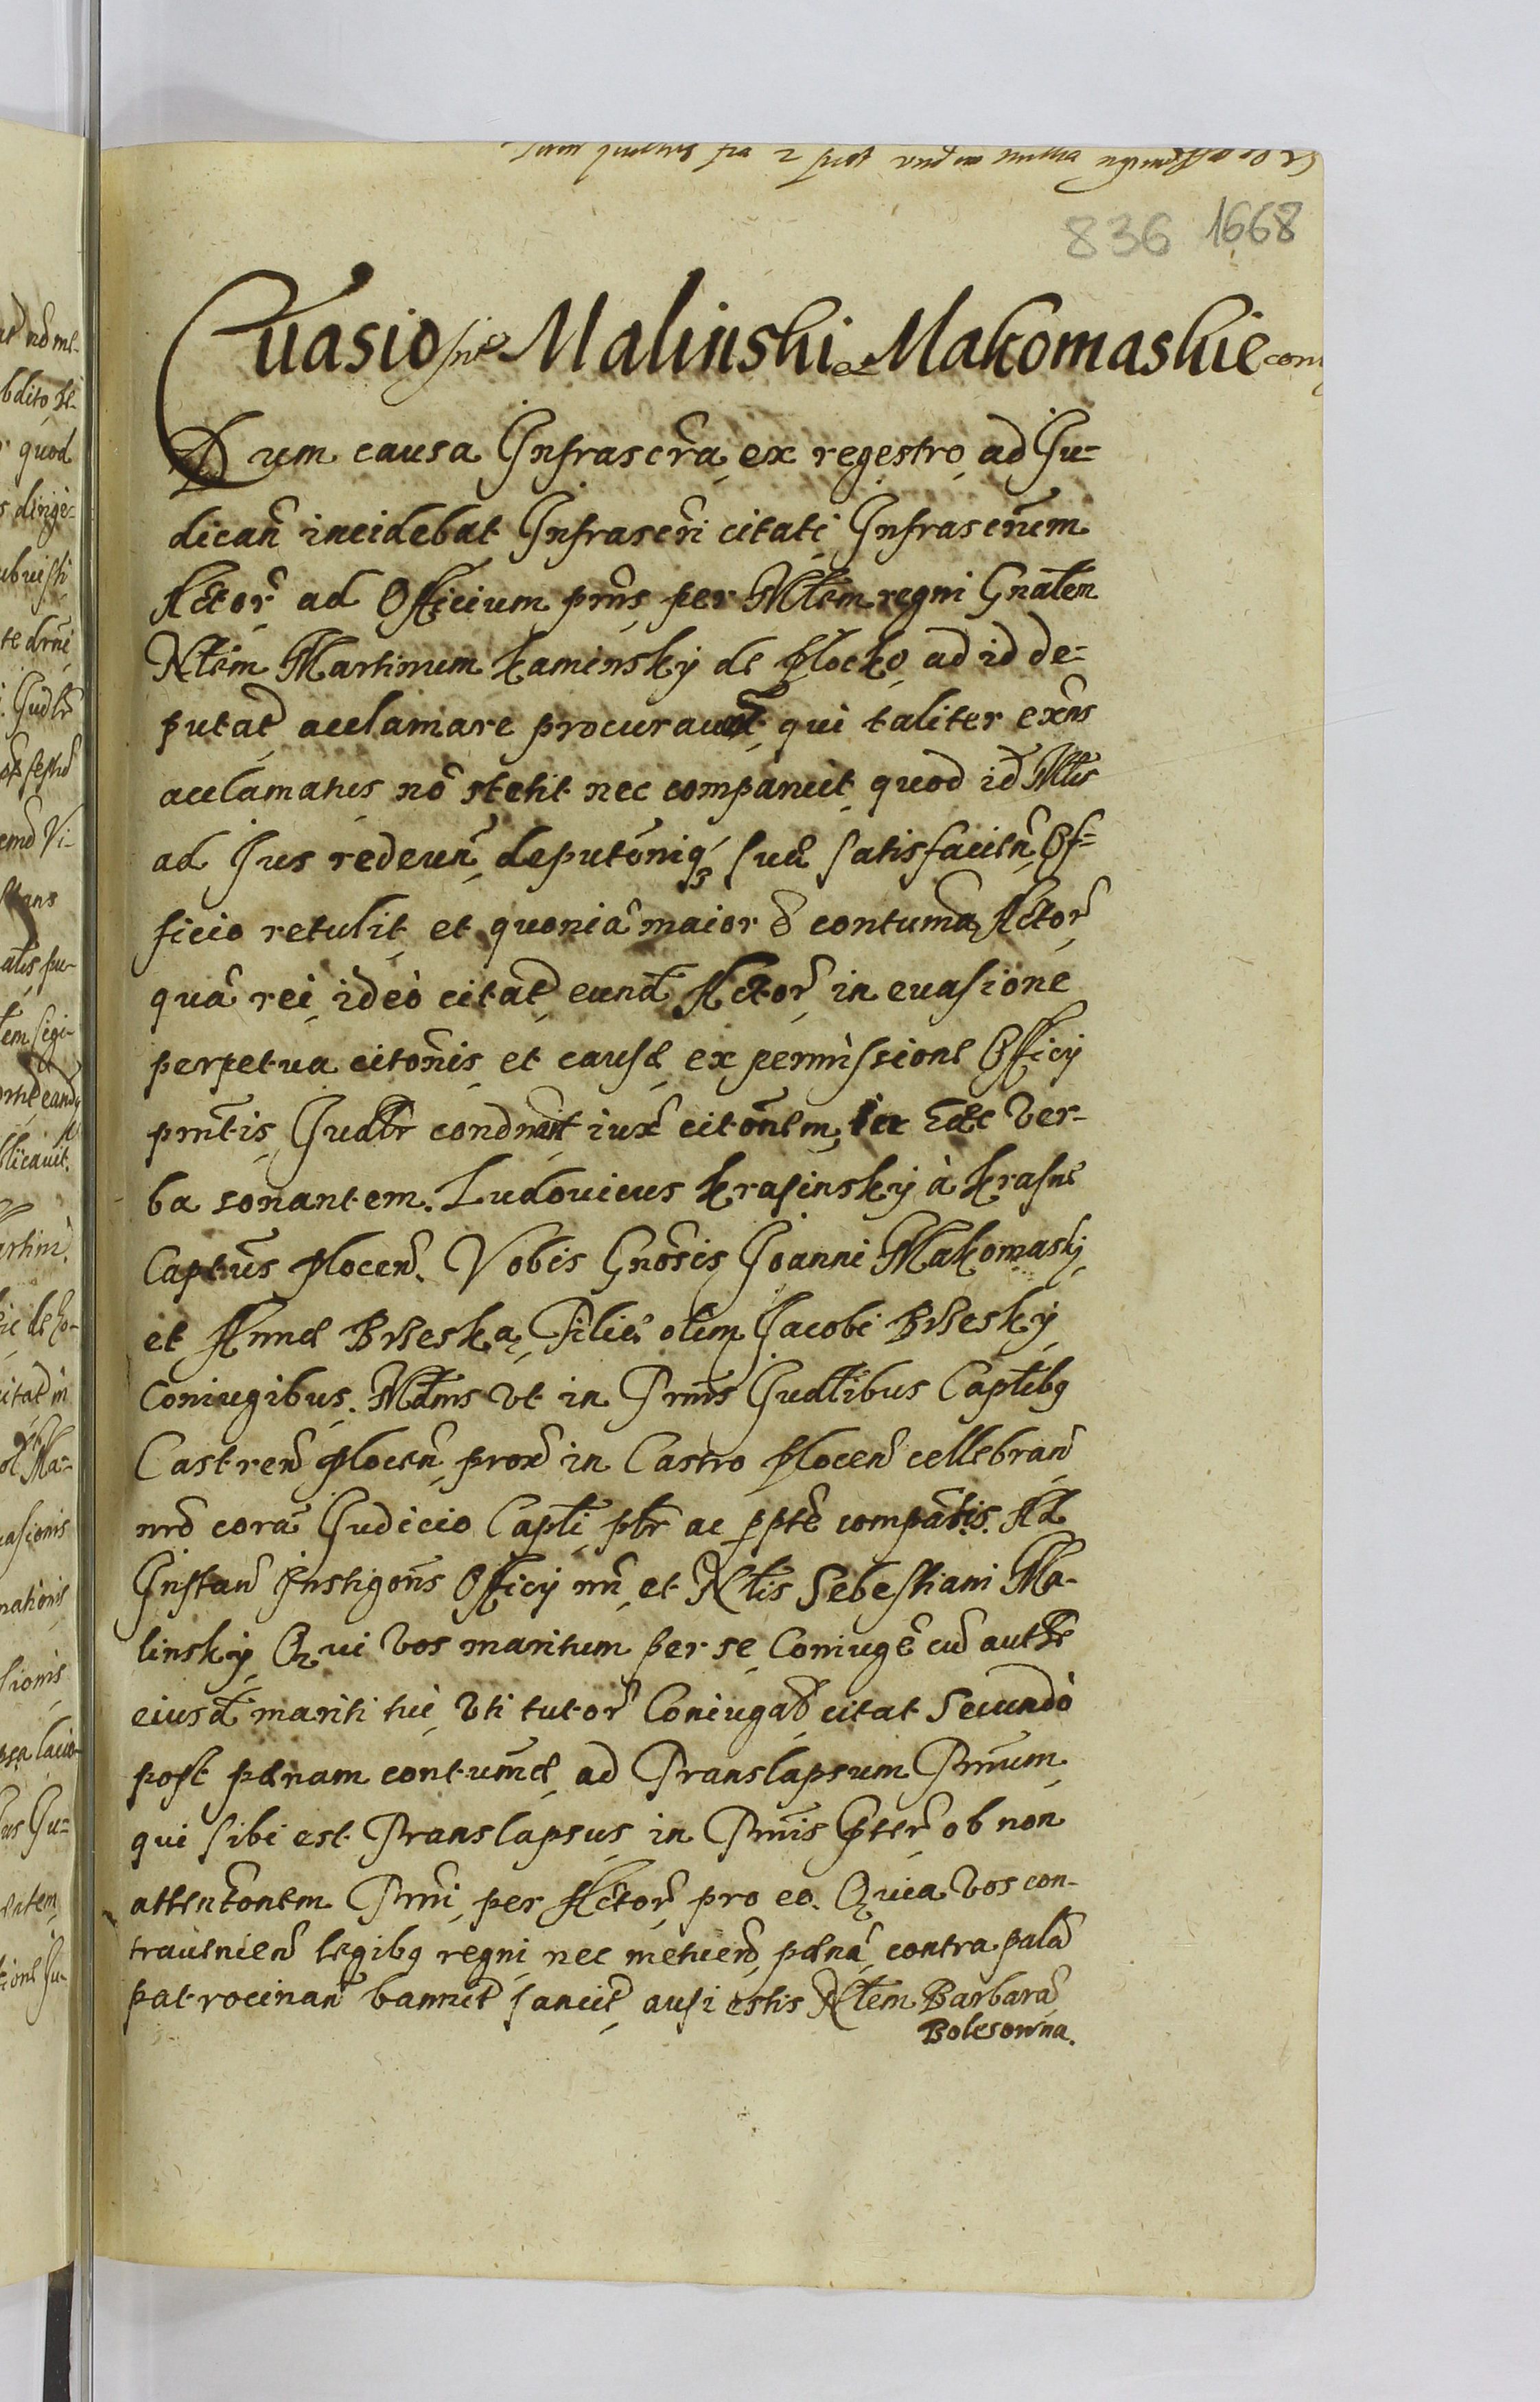 836 1668
Evasio inter Malinski et Makomaskie
Dum causa Infrascra ex regestro ad Ju-
dican incidebat Infrascri citati Infrascrum
Actor ad Officium pns per Mtem regni Gnalem
Nlem Martinum Kaminsky de Plocko ad id de-
putat acclamare procuraverut qui taliter exns
acclamatus nō stetit nec comparuit quod id Mtis
ad Jus redeun deputōniq3 suæ satisfacien Of-
ficio retulit et quoniā maior ē contuma Actor
quā rei ideò citat eund Actor in evasione
perpetua citōnis et causæ ex permissione Officij
pntis Judlr condnāt iux citōnem in Hæc ver-
ba sonantem. Ludovicus Krasinsky à Krasne
Captūs Plocen. Vobis Gnōsis Joanni Makomasky
et Annæ Brleska Filiæ olim Jacobi Brlesky
Coniugibus. Mdms vt in Trmis Judlibus Captlibq
Castren Plocen prox in Castro Plocen cellebran
nrō corā Judicio Captli pltr ac ppte compātis. Ad
Instan Instigōris Officij nri et Nlis Sebestiani Ma-
linsky Qui vos maritum per se Coniugē cū auth
eiusd mariti tui vti tutor Coniugat citat Secundò
post pænam contumæ ad Translapsum Trmum
qui sibi est Translapsus in Trmis Pter ob non
attentōnem Trmi per Actor pro eo. Quia vos con-
travenien legibq regni nec metuen pænā contra palā
patrocinan bannit sancit ausi estis Nlem Barbarā
Bolesowna.